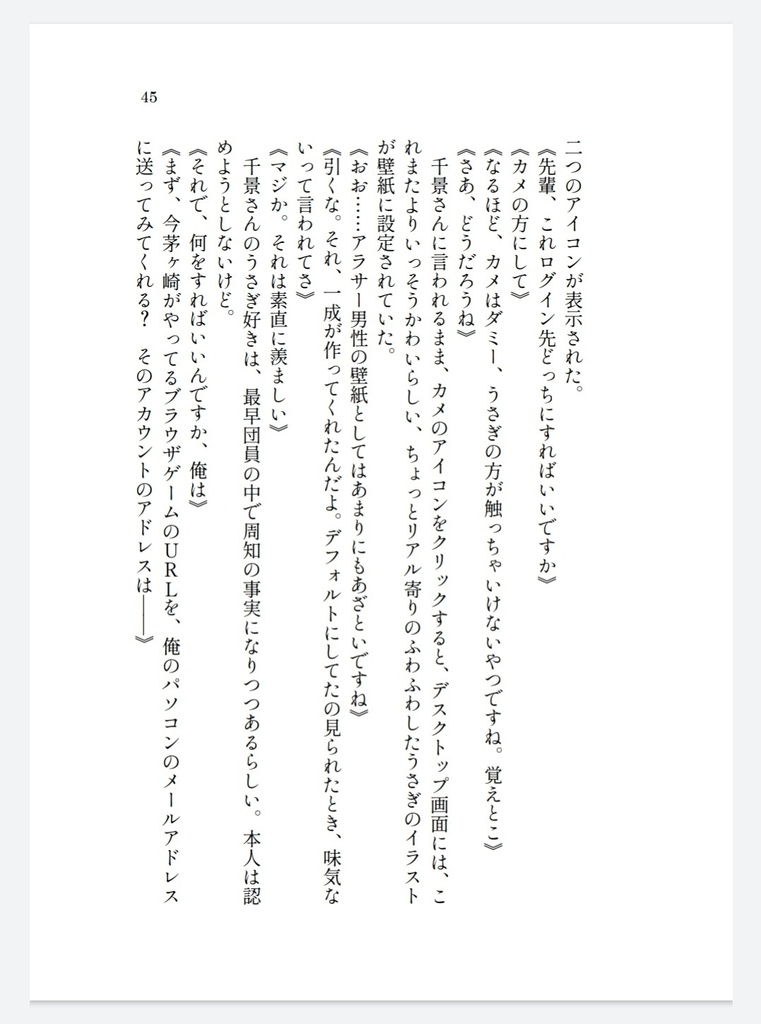 45
二つのアイコンが表示された。
《先輩、これログイン先どっちにすればいいですか》
《カメの方にして》
《なるほど、カメはダミー、うさぎの方が触っちゃいけないやつですね。覚えとこ》
《さあ、どうだろうね》
　千景さんに言われるまま、カメのアイコンをクリックすると、デスクトップ画面には、こ
れまたよりいっそうかわいらしい、ちょっとリアル寄りのふわふわしたうさぎのイラスト
が壁紙に設定されていた。
《おお……アラサー男性の壁紙としてはあまりにもあざといですね》
《引くな。それ、一成が作ってくれたんだよ。デフォルトにしてたの見られたとき、味気な
いって言われてさ》
《マジか。それは素直に羨ましい》
　千景さんのうさぎ好きは、最早団員の中で周知の事実になりつつあるらしい。本人は認
めようとしないけど。
《それで、何をすればいいんですか、俺は》
《まず、今茅ヶ崎がやってるブラウザゲームのURLを、俺のパソコンのメールアドレス
に送ってみてくれる？　そのアカウントのアドレスは――》